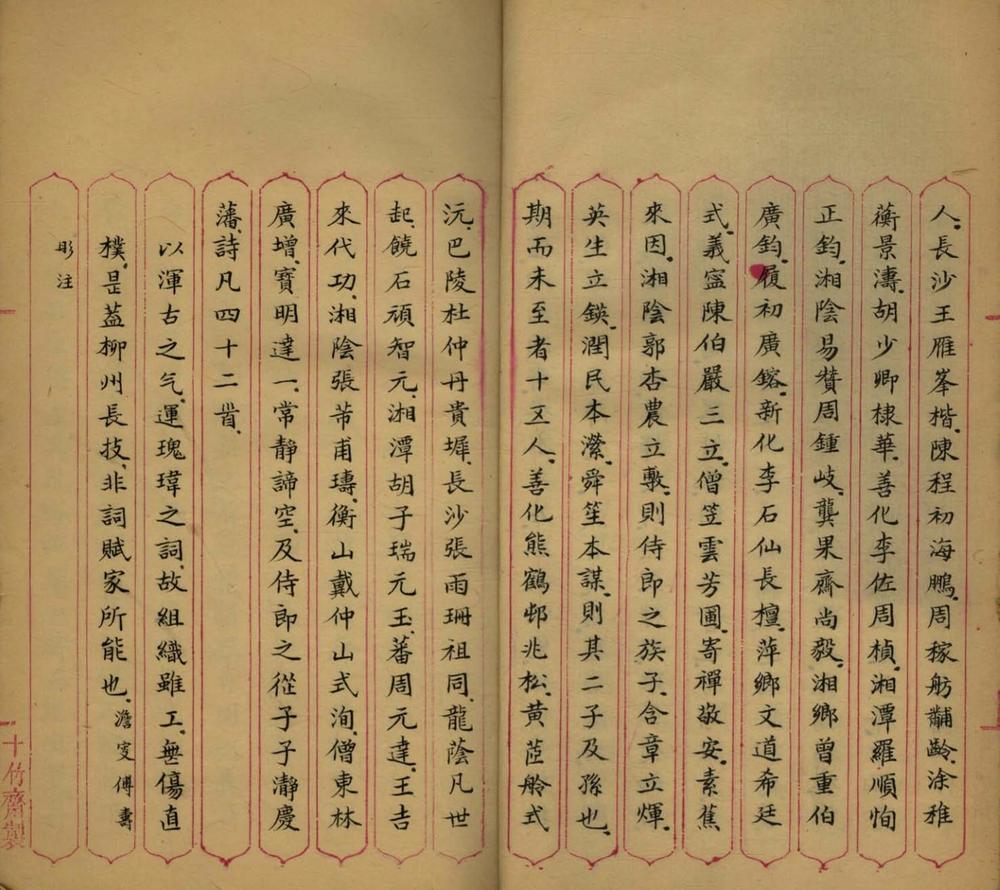 人長沙王雁峯楷陳程初海鵬周稼舫黼齡涂稚
蘅景濤胡少卿棣華善化李佐周楨湘潭羅順恂
正鈞湘陰易贊周鍾岐龔果齋尚毅湘鄉曾重伯
廣鈞履初廣鎔新化李石仙長檀萍鄉文道希廷
式義寍陳伯嚴三立僧笠雲芳圃寄禪敬安素蕉
來因湘陰郭杏農立敷則侍郎之族子含章立煇
英生立鍈潤民本瀠舜笙本謀則其二子及孫也
期而未至者十五人善化熊鶴邨兆松黃茝舲式
沅巴陵杜仲丹貴墀長沙張雨珊祖同龍蔭凡世
起饒石頑智元湘潭胡子瑞元玉蕃周元達王吉
來代功湘陰張芾甫璹衡山戴仲山式洵僧東林
廣增寶明達一常靜諦空及侍郎之從子子瀞慶
藩詩凡四十二首
以渾古之气運瑰瑋之詞故組織雖工無傷直
樸是葢柳州長技非詞賦家所能也澹叟傅壽
彤注
十竹齋製